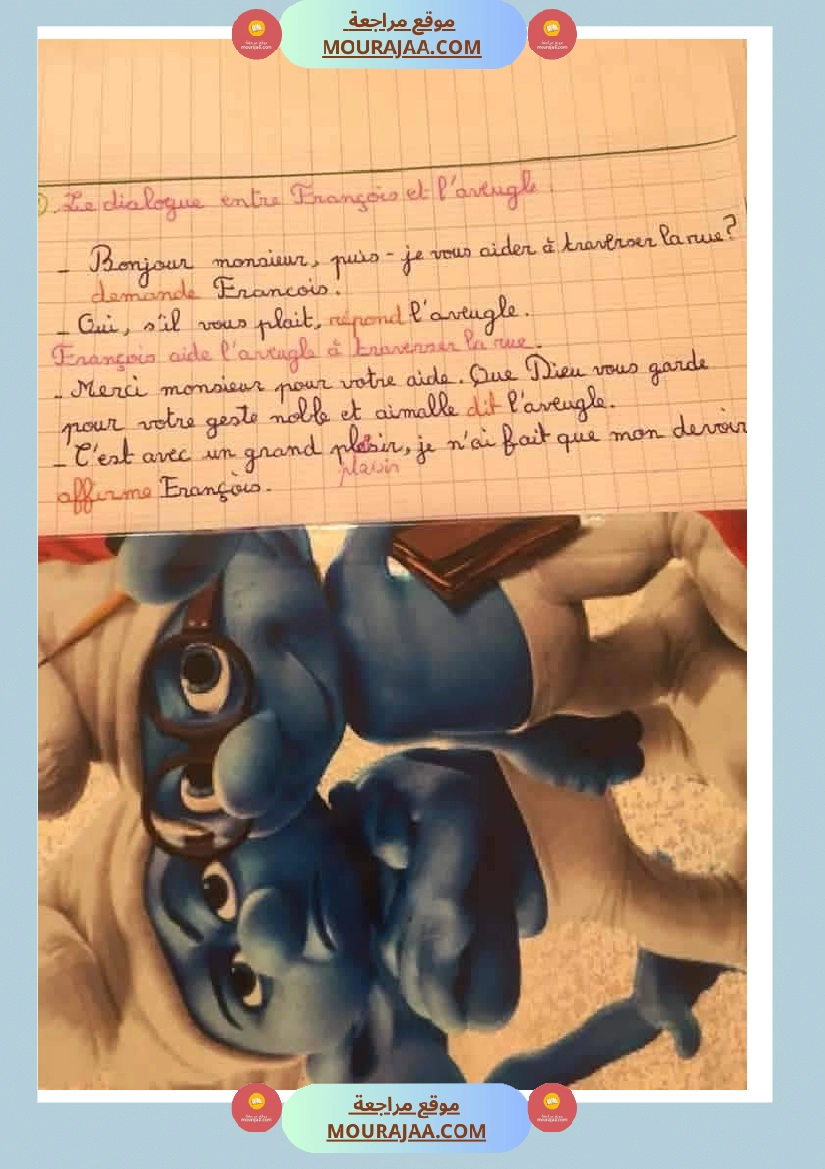 موقع مراجعة
MOURAJAA.COM
Le dialogue entre François et l'aveugle.
- Bonjour monsieur, puis-je vous aider à traverser la rue?
demande Francois.
- Oui, s'il vous plait, répond l'aveugle.
François aide l'aveugle à traverser la rue.
- Merci monsieur pour votre aide. Que Dieu vous garde
pour votre geste noble et aimalle dit l'aveugle.
- C'est avec un grand plaisir, je n'ai fait que mon devoir
plaisir
affirme François.
موقع مراجعة
MOURAJAA.COM